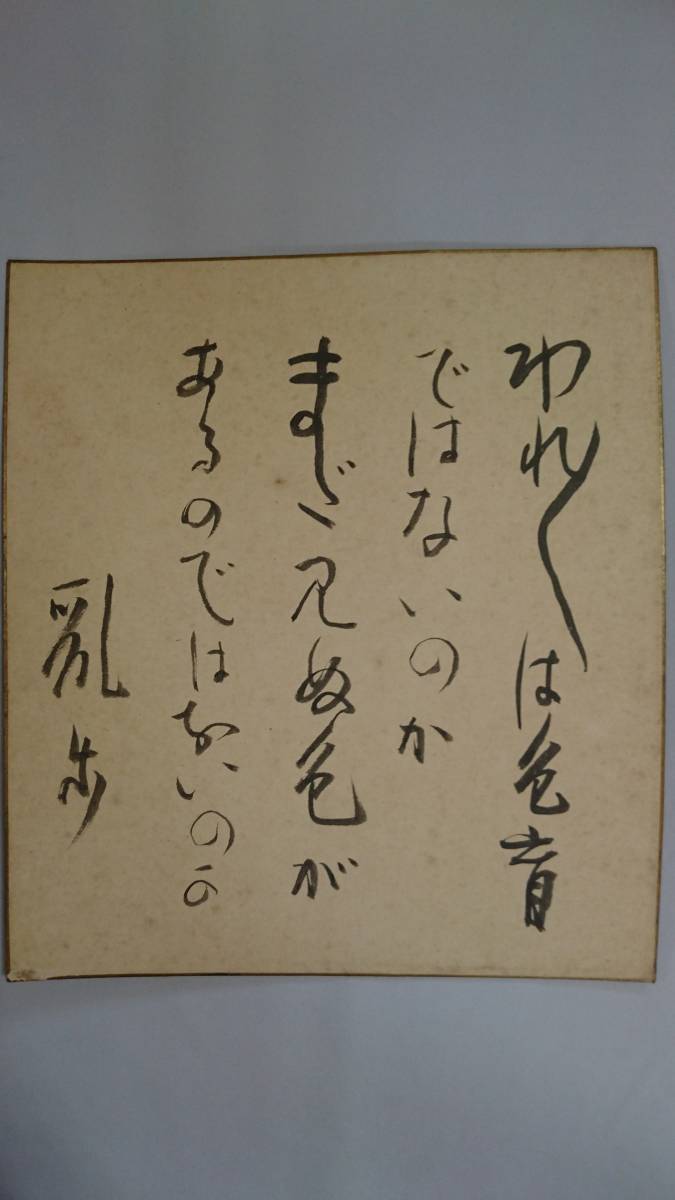 われ〳〵は色盲
ではないのか
まだ見ぬ色が
あるのではないのか
乱歩